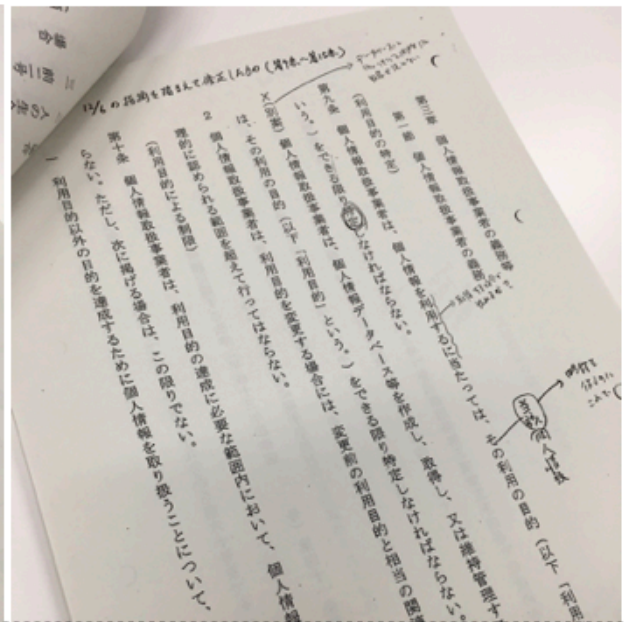 12/6の指摘を踏まえて修正したもの(第9条〜第15条)
第三章 個人情報取扱事業者の義務等
第一節 個人情報取扱事業者の義務
(利用目的の特定)
第九条 個人情報取扱事業者は、個人情報を利用するに当たっては、その利用の目的(以下「利用
いう。)をできる限り特定しなければならない。
×(別案)個人情報取扱事業者は、個人情報データベース等を作成し、取得し、又は維持管理す
は、その利用の目的(以下「利用目的」という。)をできる限り特定しなければならない。
2 個人情報取扱事業者は、利用目的を変更する場合には、変更前の利用目的と相当の関連
理的に認められる範囲を超えて行ってはならない。
(利用目的による制限)
第十条 個人情報取扱事業者は、利用目的の達成に必要な範囲内において、個人情報
らない。ただし、次に掲げる場合は、この限りでない。
一 利用目的以外の目的を達成するために個人情報を取り扱うことについて、
個人情報